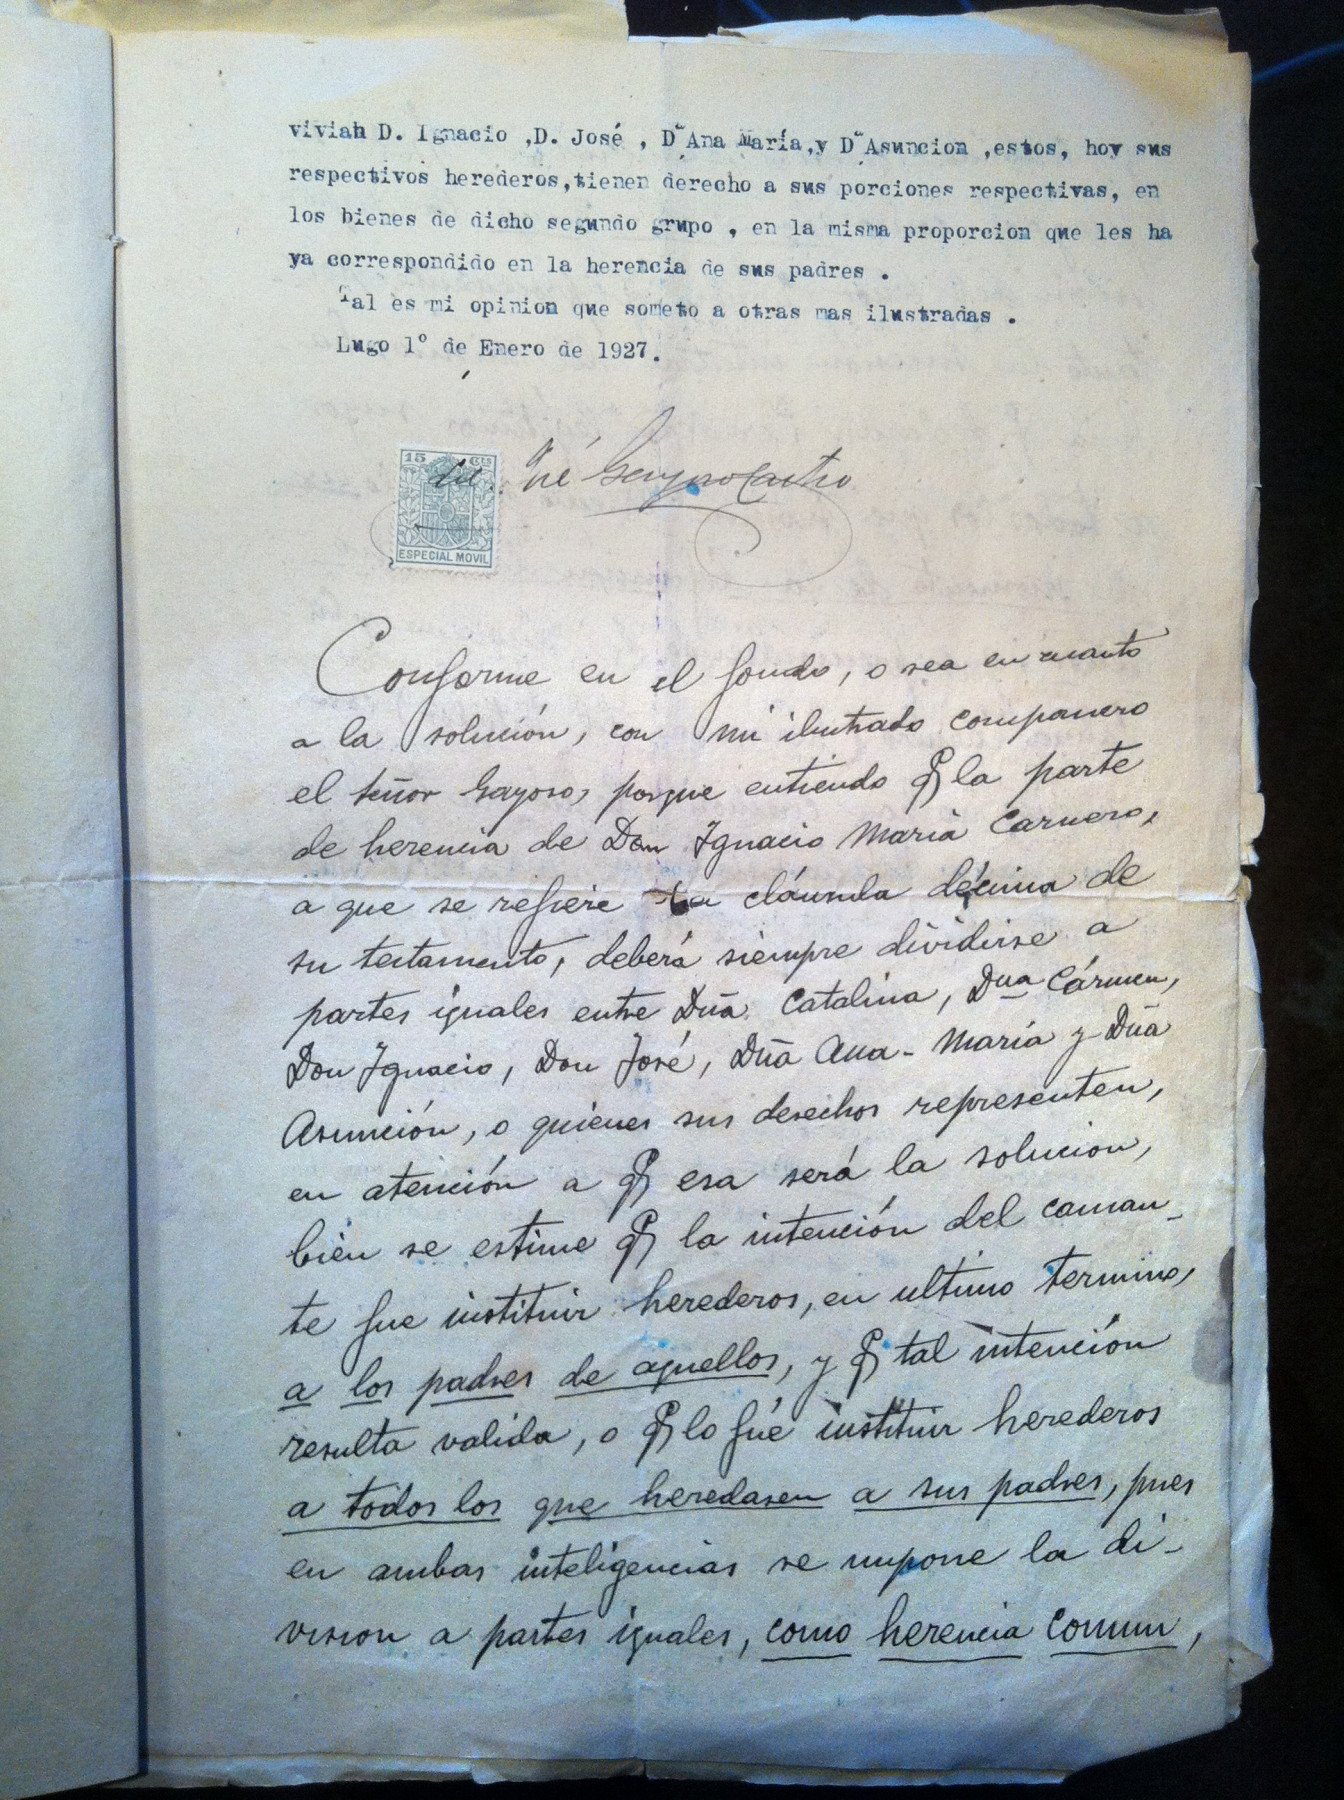 vivian D. Ignacio ,D. José , Dª Ana María,y Dª Asuncion ,estos, hoy sus
respectivos herederos,tienen derecho a sus porciones respectivas, en
los bienes de dicho segundo grupo , en la misma proporcion que les ha
ya correspondido en la herencia de sus padres .
Tal es mi opinion que someto a otras mas ilustradas .
Lugo 1º de Enero de 1927.
15 Cts
José Gayoso Castro
ESPECIAL MOVIL
Conforme en el fondo, o sea en cuanto
a la solución, con mi ilustrado companero
el señor Gayoso, porque entiendo q la parte
de herencia de Don Ignacio Maria Carnero,
a que se refiere la cláusula décima de
su testamento, deberá siempre dividirse a
partes iguales entre Dña Catalina, Dna Cármen,
Don Ignacio, Don José, Dña Ana-María y Dña
Asunción, o quienes sus derechos representen,
en atención a q esa será la solucion,
bien se estime q la intención del causan-
te fue instituir herederos, en ultimo termino,
a los padres de aquellos, y q tal intención
resulta valida, o q lo fué instituir herederos
a todos los que heredasen a sus padres, pues
en ambas inteligencias se impone la di-
vision a partes iguales, como herencia comun,